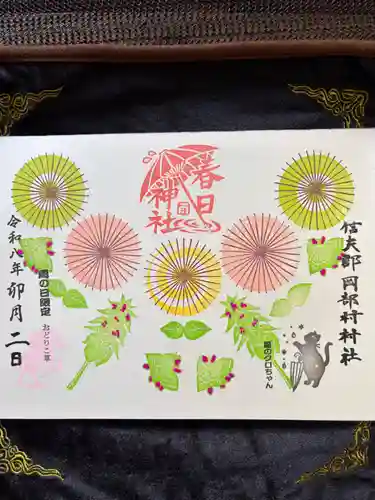 春日神社
信夫郡岡部村村社
雨のクロちゃん
雨の日限定
おどりこ草
令和八年卯月二日